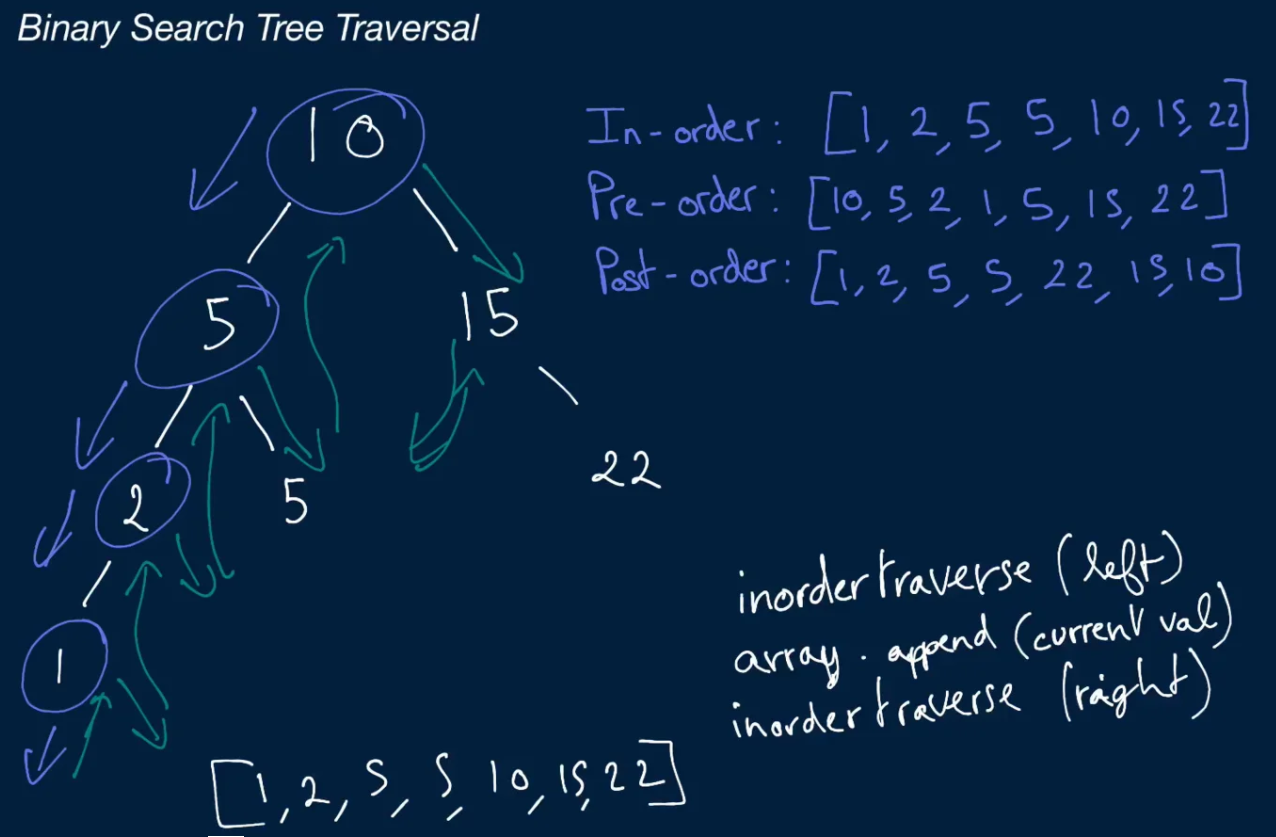 Binary Search Tree Traversal
10
In-order: [1, 2, 5, 5, 10, 15, 22]
Pre-order: [10, 5, 2, 1, 5, 15, 22]
Post-order: [1, 2, 5, 5, 22, 15, 10]
5
15
2
5
22
1
inordertraverse (left)
array.append (current val)
inordertraverse (right)
[1, 2, 5, 5, 10, 15, 22]